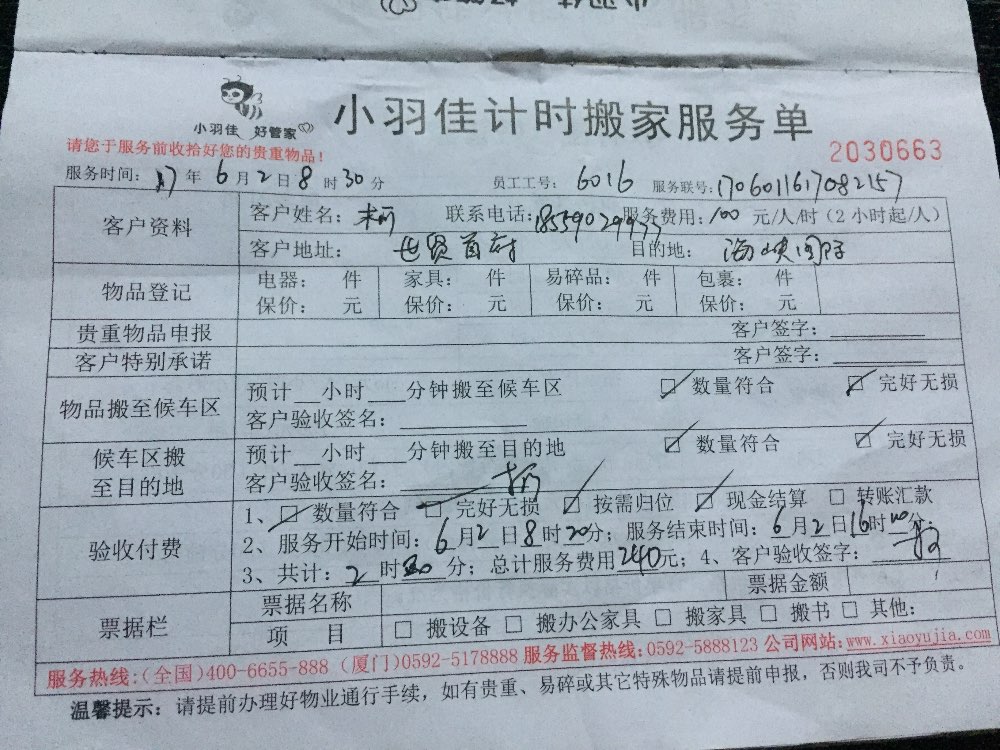 小羽佳 好管家
小羽佳计时搬家服务单
请您于服务前收拾好您的贵重物品!
2030663
服务时间: 17 年 6 月 2 日 8 时 30 分 员工工号: 6016 服务联号: 1706011617082157
客户资料
客户姓名: 联系电话: 服务费用: 100 元/人/时(2小时起/人)
客户地址: 世贤首府 目的地: 海峡国际
物品登记
电器: 件 家具: 件 易碎品: 件 包裹: 件
保价: 元 保价: 元 保价: 元 保价: 元
贵重物品申报 客户签字:
客户特别承诺 客户签字:
物品搬至候车区
预计__小时___分钟搬至候车区 ☑ 数量符合 ☑ 完好无损
客户验收签名:
候车区搬至目的地
预计__小时___分钟搬至目的地 ☑ 数量符合 ☑ 完好无损
客户验收签名:
验收付费
1、☑ 数量符合 ☑ 完好无损 ☑ 按需归位 ☑ 现金结算 □ 转账汇款
2、服务开始时间: 6 月 2 日 8 时 20 分; 服务结束时间: 6 月 2 日 16 时 分;
3、共计: 2 时 分; 总计服务费用 240 元; 4、客户验收签字:
票据栏
票据名称 票据金额
项 目 □ 搬设备 □ 搬办公家具 □ 搬家具 □ 搬书 □ 其他:
服务热线:(全国)400-6655-888 (厦门)0592-5178888 服务监督热线:0592-5888123 公司网站:www.xiaoyujia.com
温馨提示: 请提前办理好物业通行手续, 如有贵重、易碎或其它特殊物品请提前申报, 否则我司不予负责。